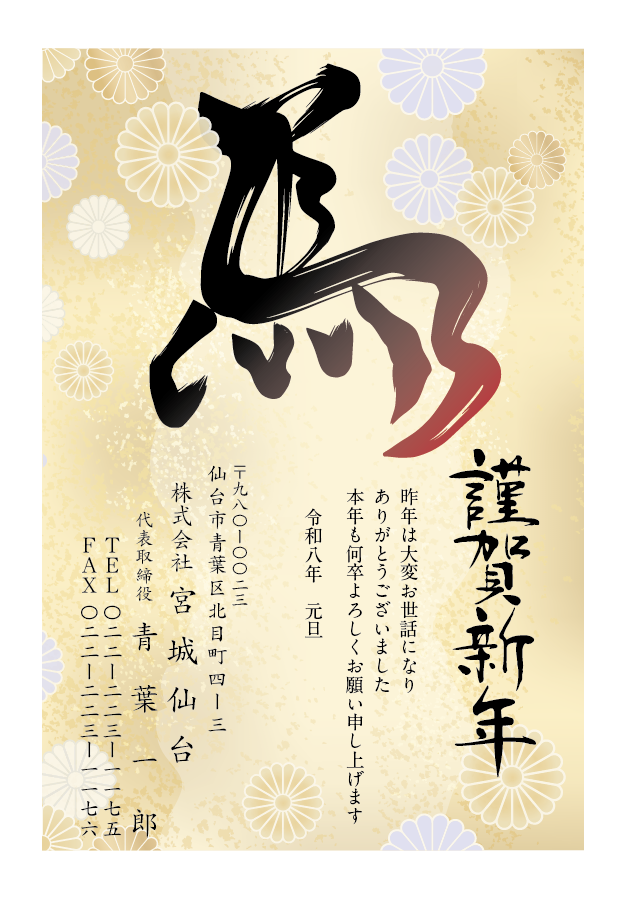 馬
謹賀新年
昨年は大変お世話になり
ありがとうございました
本年も何卒よろしくお願い申し上げます
令和八年　元旦
〒九八〇ー〇〇二三
仙台市青葉区北目町四ー三
株式会社 宮城仙台
代表取締役 青葉一郎
TEL 〇二二ー二二三ー一一七五
FAX 〇二二ー二二三ー一一七六